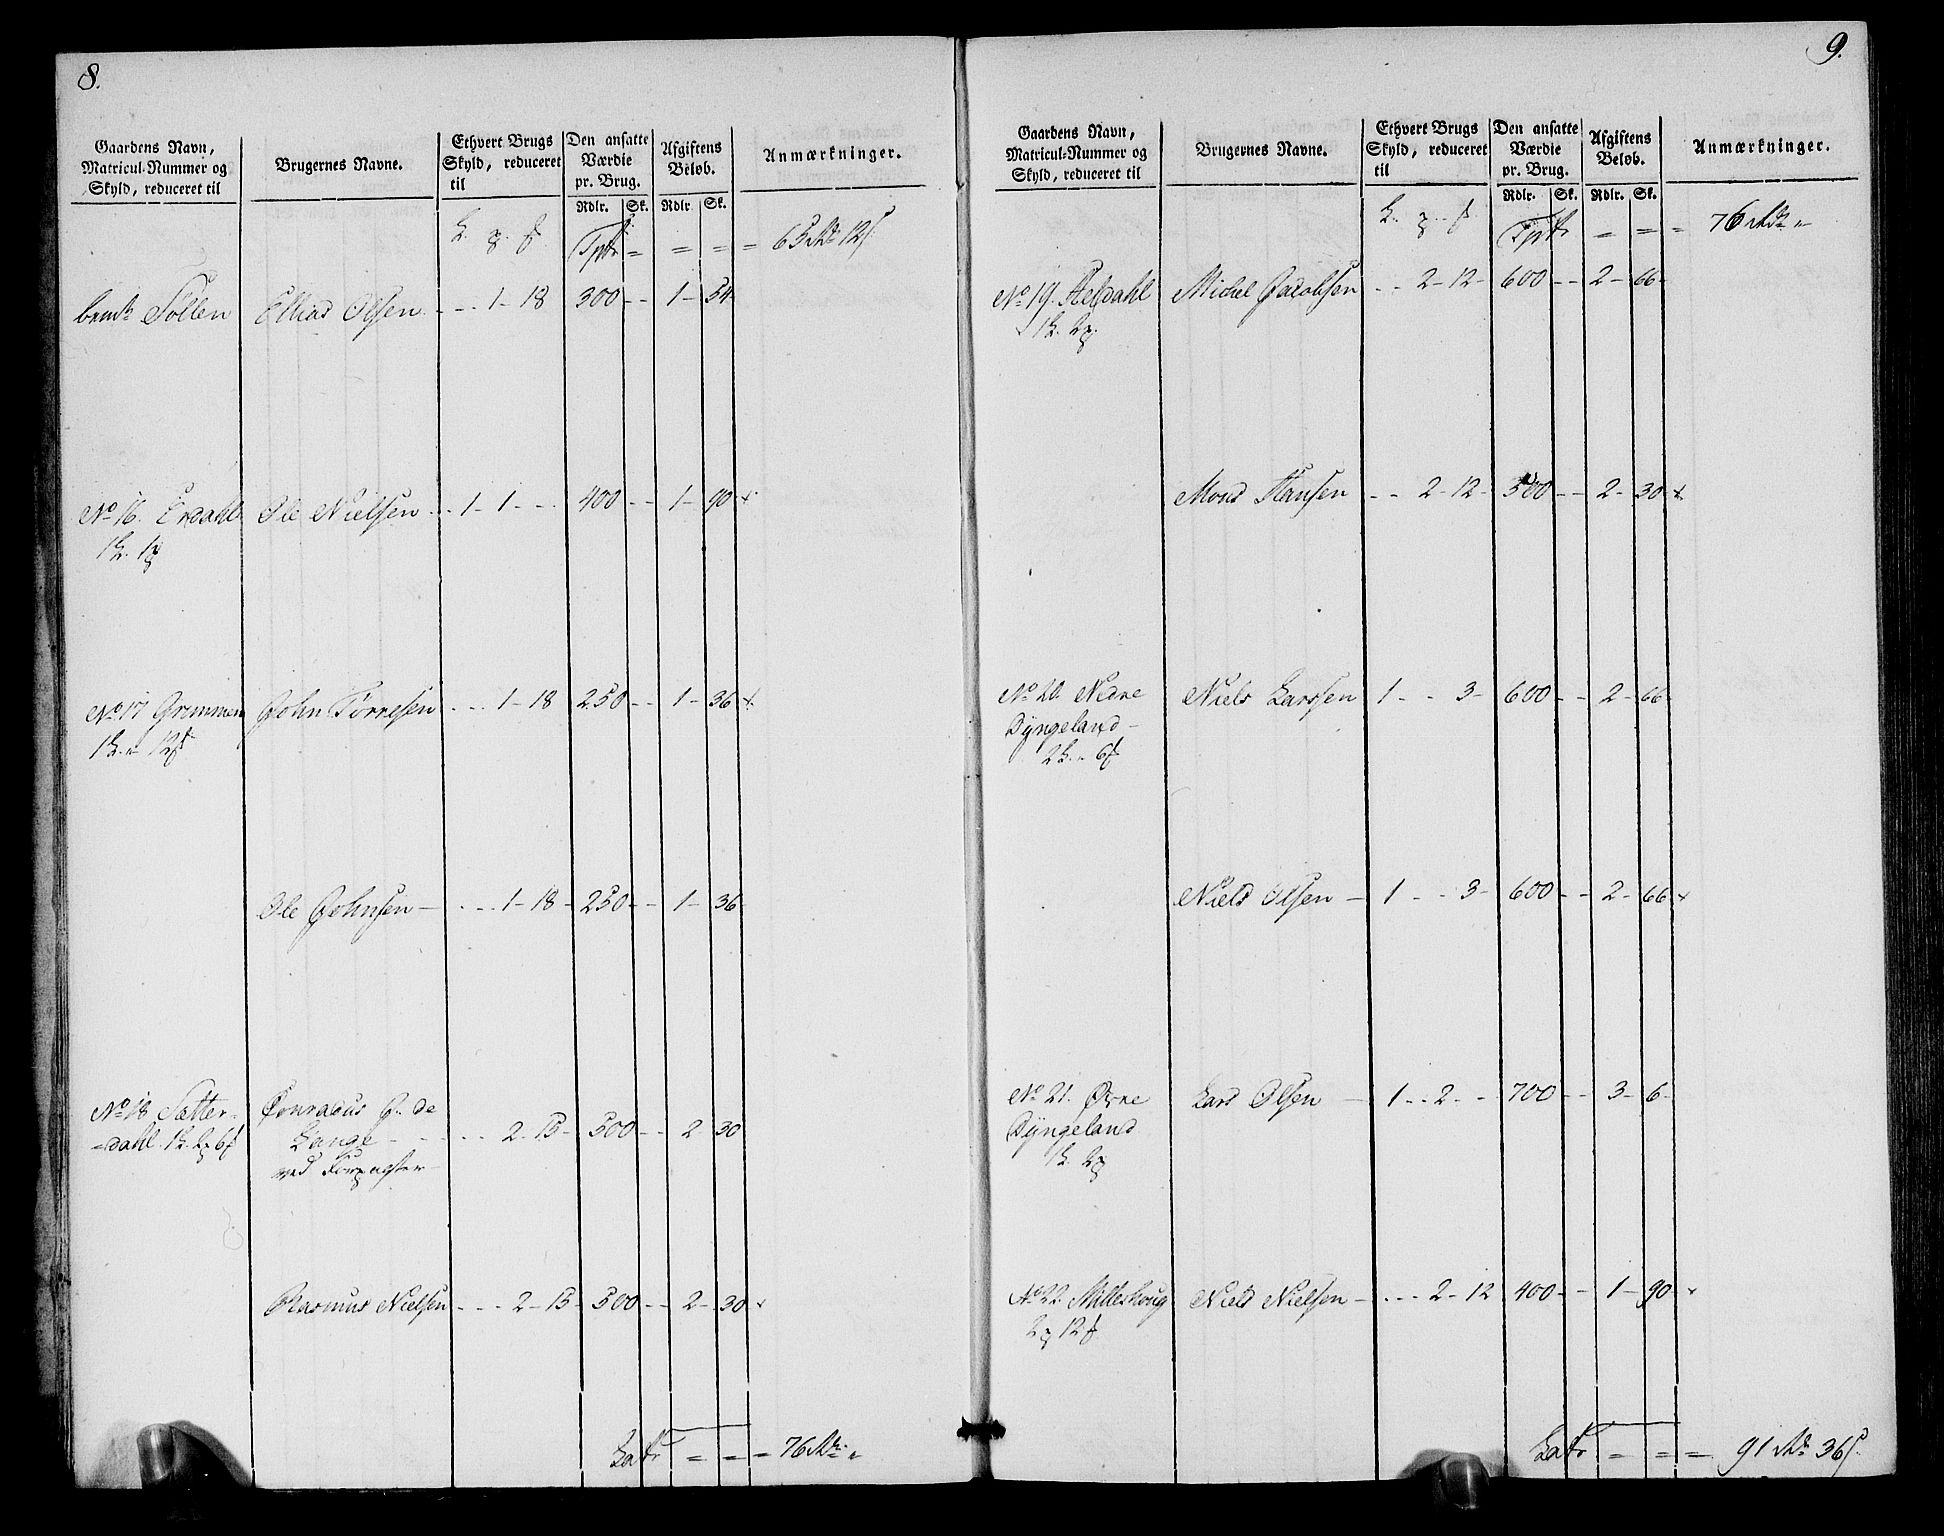 8.
Gaardens Navn,
Matricul-Nummer og
Skyld, reduceret til
Brugernes Navne.
Ethvert Brugs
Skyld, reduceret
til
Den ansatte
Værdie
pr. Brug.
Rdlr. Sk.
Afgiftens
Beløb.
Rdlr. Sk.
Anmærkninger.
Tptr = = = = 65 Rd. 12 s.
Søllen Ellias Olsen - - - 1 - 18 300 - - 1 - 54
No 16. Erdahl Ole Nielsen - - 1 - 1 - - - 400 - - 1 - 90 x
No 17 Grimmen John Torresen - - - 1 - 18 - 250 - - 1 - 36 x
Ole Johnsen - - - - 1 - 18 - 250 - - 1 - 36
No 18 Sætter- Conradus G. de
-dahl. Lange - - - - 2 - 15 - 500 - - 2 - 30
ved Forpagter -
Rasmus Nielsen - - - 2 - 15 - 500 - - 2 - 30 x
Latr = = = 76 Rd. "
9.
Gaardens Navn,
Matricul-Nummer og
Skyld, reduceret til
Brugernes Navne.
Ethvert Brugs
Skyld, reduceret
til
Den ansatte
Værdie
pr. Brug.
Rdlr. Sk.
Afgiftens
Beløb.
Rdlr. Sk.
Anmærkninger.
Tptr = = = 76 Rd. "
No 19. Helldahl Michel Jacobsen - - 2 - 12 - 600 - - 2 - 66 -
Mons Hansen - - 2 - 12 - 500 - - 2 - 30 x
No 20. Nedre Niels Larssen 1 - - 3 - 600 - - 2 - 66
Dyngeland -
Niels Olsen - 1 - - 3 - 600 - - 2 - 66 x
No 21. Øvre Lars Olsen - 1 - - 2 - - - 700 - - 3 - 6 -
Dyngeland
No 22. Milleshoug Niels Nielsen - - - - 2 - 12 400 - - 1 - 90 x
Latr = = = 91 Rd. 36 s.